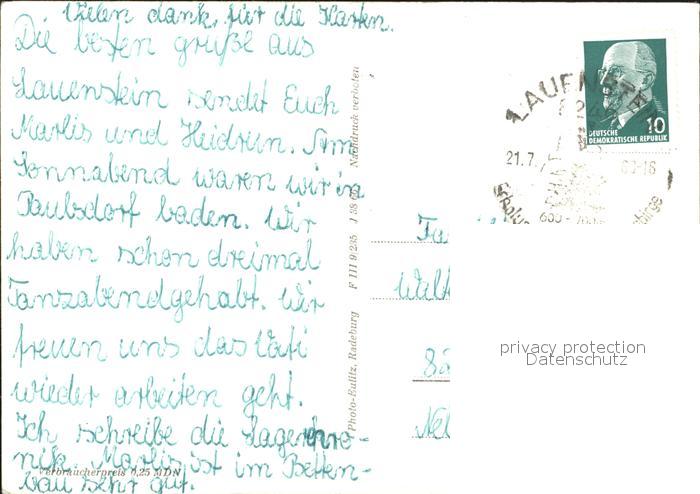 Vielen dank, für die Karten.
Die besten grüße aus
Lauenstein sendet Euch
Marlis und Heidrun. Am
Sonnabend waren wir in
Paulsdorf baden. Wir
haben schon dreimal
Tanzabend gehabt. Wir
freuen uns das Vati
wieder arbeiten geht.
Ich schreibe die Lagerchro-
nik. Marlis ist im Betten-
bau sehr gut.
Verbraucherpreis 0,25 MDN
Photo-Eulitz, Radeburg F III 9 235 1 58 Nachdruck verboten
LAUENSTE
21.7.
600-
birge
10
DEUTSCHE
DEMOKRATISCHE REPUBLIK
Fa
Walt
82
privacy protection
Datenschutz